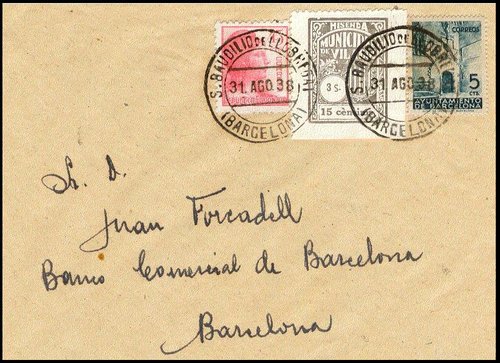 HISENDA
MUNICIPAL
DE VIL
3 S.
15 cèntims
CORREOS
5
CTS
AYUNTAMIENTO
DE BARCELONA
S. BAUDILIO DE LLOBREGAT
31 AGO 38
(BARCELONA)
S. BAUDILIO DE LLOBREGAT
31 AGO 38
(BARCELONA)
Sr. D.
Juan Forcadell
Banco Comercial de Barcelona
Barcelona